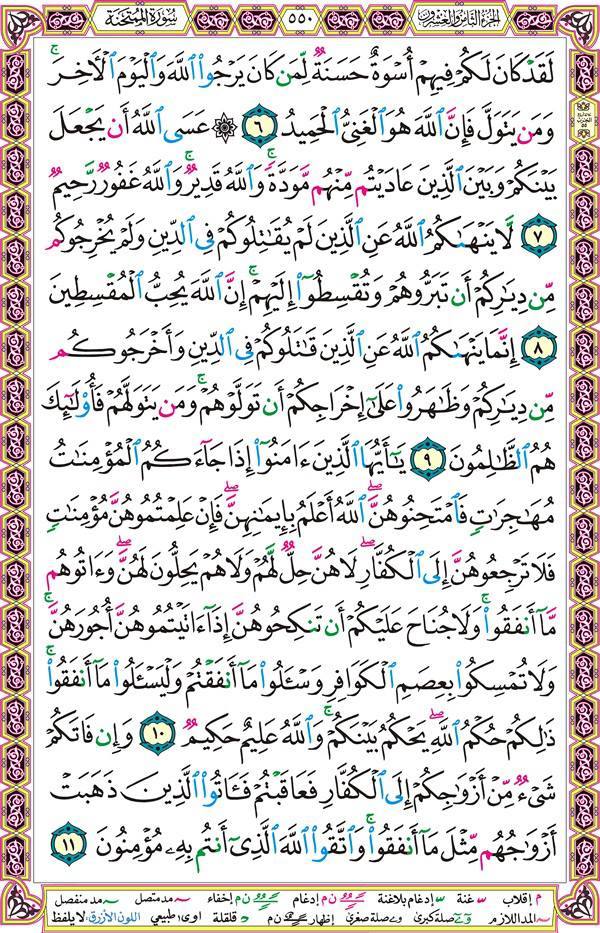 الجزء الثامن والعشرون ٥٥٠ سورة الممتحنة
لَقَدْ كَانَ لَكُمْ فِيهِمْ أُسْوَةٌ حَسَنَةٌ لِّمَن كَانَ يَرْجُوا۟ ٱللَّهَ وَٱلْيَوْمَ ٱلْـَٔاخِرَ ۚ
وَمَن يَتَوَلَّ فَإِنَّ ٱللَّهَ هُوَ ٱلْغَنِىُّ ٱلْحَمِيدُ ٦ ۞ عَسَى ٱللَّهُ أَن يَجْعَلَ
بَيْنَكُمْ وَبَيْنَ ٱلَّذِينَ عَادَيْتُم مِّنْهُم مَّوَدَّةً ۚ وَٱللَّهُ قَدِيرٌ ۚ وَٱللَّهُ غَفُورٌ رَّحِيمٌ
٧ لَّا يَنْهَىٰكُمُ ٱللَّهُ عَنِ ٱلَّذِينَ لَمْ يُقَـٰتِلُوكُمْ فِى ٱلدِّينِ وَلَمْ يُخْرِجُوكُم
مِّن دِيَـٰرِكُمْ أَن تَبَرُّوهُمْ وَتُقْسِطُوٓا۟ إِلَيْهِمْ ۚ إِنَّ ٱللَّهَ يُحِبُّ ٱلْمُقْسِطِينَ
٨ إِنَّمَا يَنْهَىٰكُمُ ٱللَّهُ عَنِ ٱلَّذِينَ قَـٰتَلُوكُمْ فِى ٱلدِّينِ وَأَخْرَجُوكُم
مِّن دِيَـٰرِكُمْ وَظَـٰهَرُوا۟ عَلَىٰٓ إِخْرَاجِكُمْ أَن تَوَلَّوْهُمْ ۚ وَمَن يَتَوَلَّهُمْ فَأُو۟لَـٰٓئِكَ
هُمُ ٱلظَّـٰلِمُونَ ٩ يَـٰٓأَيُّهَا ٱلَّذِينَ ءَامَنُوٓا۟ إِذَا جَآءَكُمُ ٱلْمُؤْمِنَـٰتُ
مُهَـٰجِرَٰتٍ فَٱمْتَحِنُوهُنَّ ۖ ٱللَّهُ أَعْلَمُ بِإِيمَـٰنِهِنَّ ۖ فَإِنْ عَلِمْتُمُوهُنَّ مُؤْمِنَـٰتٍ
فَلَا تَرْجِعُوهُنَّ إِلَى ٱلْكُفَّارِ ۖ لَا هُنَّ حِلٌّ لَّهُمْ وَلَا هُمْ يَحِلُّونَ لَهُنَّ ۖ وَءَاتُوهُم
مَّآ أَنفَقُوا۟ ۚ وَلَا جُنَاحَ عَلَيْكُمْ أَن تَنكِحُوهُنَّ إِذَآ ءَاتَيْتُمُوهُنَّ أُجُورَهُنَّ ۚ
وَلَا تُمْسِكُوا۟ بِعِصَمِ ٱلْكَوَافِرِ وَسْـَٔلُوا۟ مَآ أَنفَقْتُمْ وَلْيَسْـَٔلُوا۟ مَآ أَنفَقُوا۟ ۚ
ذَٰلِكُمْ حُكْمُ ٱللَّهِ ۖ يَحْكُمُ بَيْنَكُمْ ۚ وَٱللَّهُ عَلِيمٌ حَكِيمٌ ١٠ وَإِن فَاتَكُمْ
شَىْءٌ مِّنْ أَزْوَٰجِكُمْ إِلَى ٱلْكُفَّارِ فَعَاقَبْتُمْ فَـَٔاتُوا۟ ٱلَّذِينَ ذَهَبَتْ
أَزْوَٰجُهُم مِّثْلَ مَآ أَنفَقُوا۟ ۚ وَٱتَّقُوا۟ ٱللَّهَ ٱلَّذِىٓ أَنتُم بِهِۦ مُؤْمِنُونَ ١١
م إقلاب غنة إدغام بلاغنة ن م إدغام ن م إخفاء مد متصل مد منفصل
المد اللازم صلة كبرى صلة صغرى إظهار ن م قلقلة اوى طبيعي اللون الأزرق: لا يلفظ